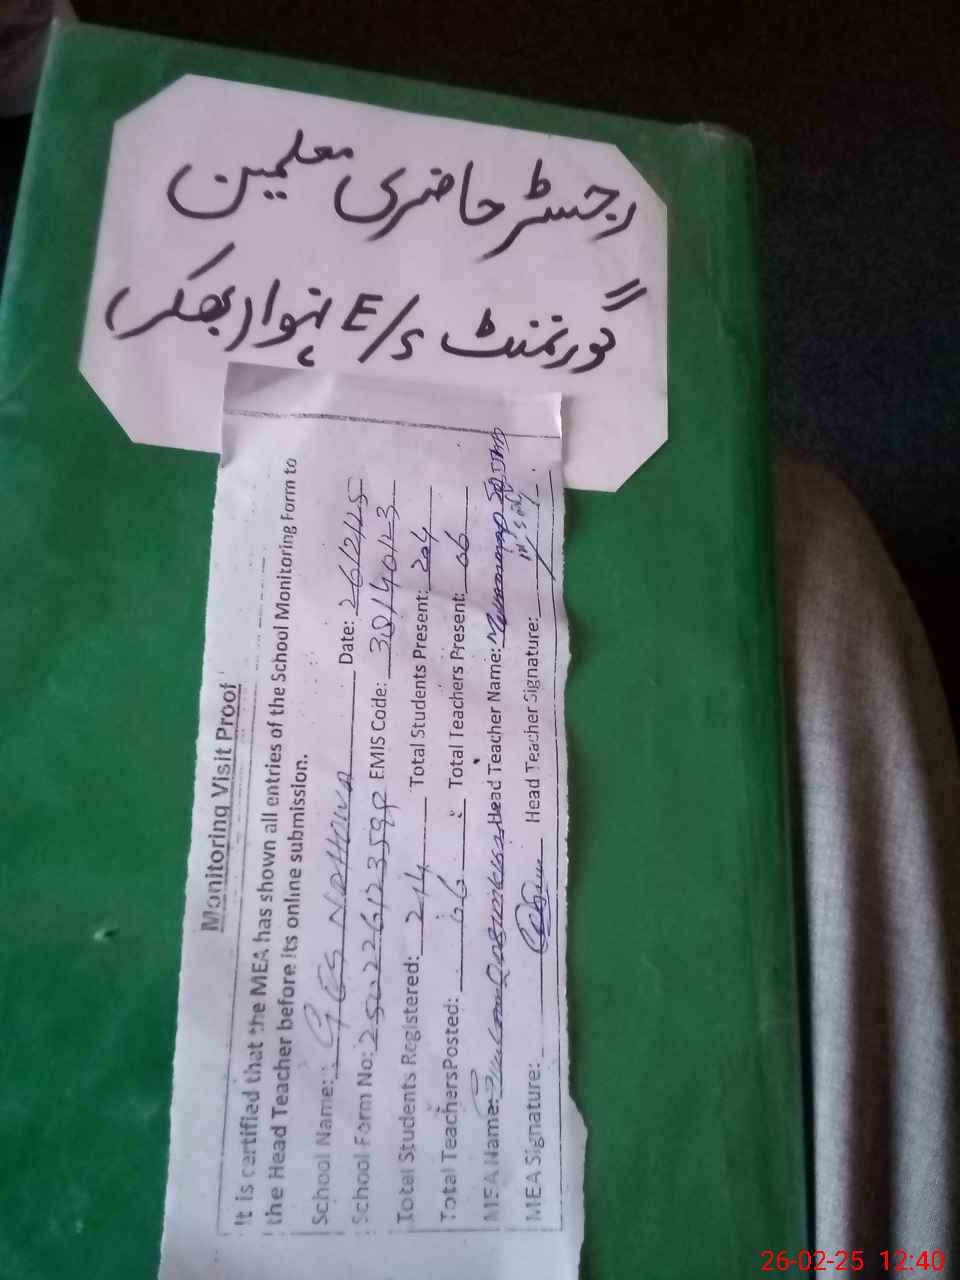 رجسٹر حاضری معلمین
گورنمنٹ E/s نہوا (بھکر)
Monitoring Visit Proof
It is certified that the MEA has shown all entries of the School Monitoring Form to
the Head Teacher before its online submission.
School Name: GES Date: 26/2/25
School Form No: EMIS Code:
Total Students Registered: 214 Total Students Present: 204
Total Teachers Posted: 06 Total Teachers Present: 06
MEA Name: Head Teacher Name:
MEA Signature: Head Teacher Signature:
26-02-25 12:40